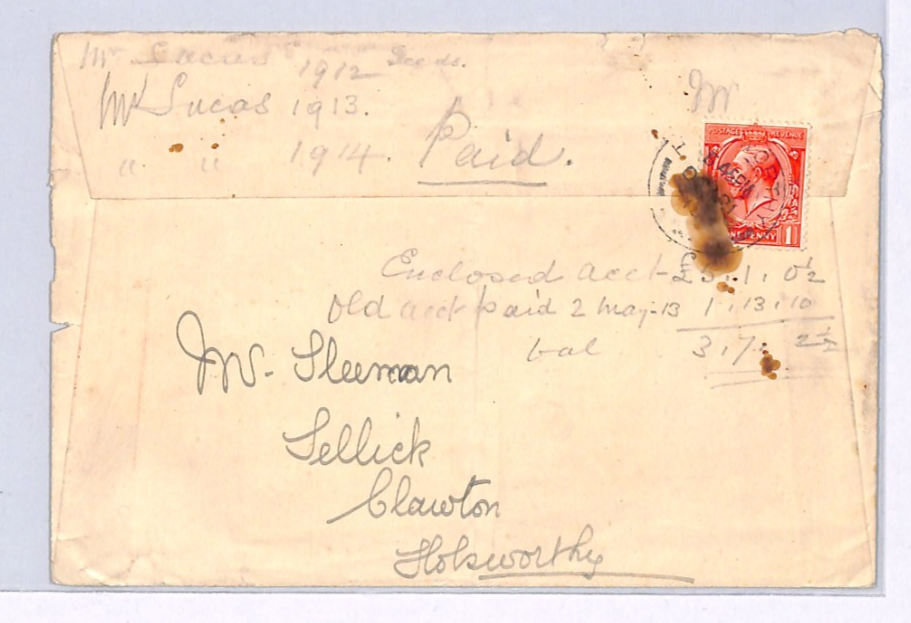 Mr Lucas 1912 Deeds.
Mr Lucas 1913.
" " 1914. Paid.
Mr
POSTAGE REVENUE
ONE PENNY 1
Enclosed acct £5.1.0½
Old acct paid 2 May-13 1.13.10
bal 3.7.2½
Mr. Sleeman
Sellick
Clawton
Holsworthy